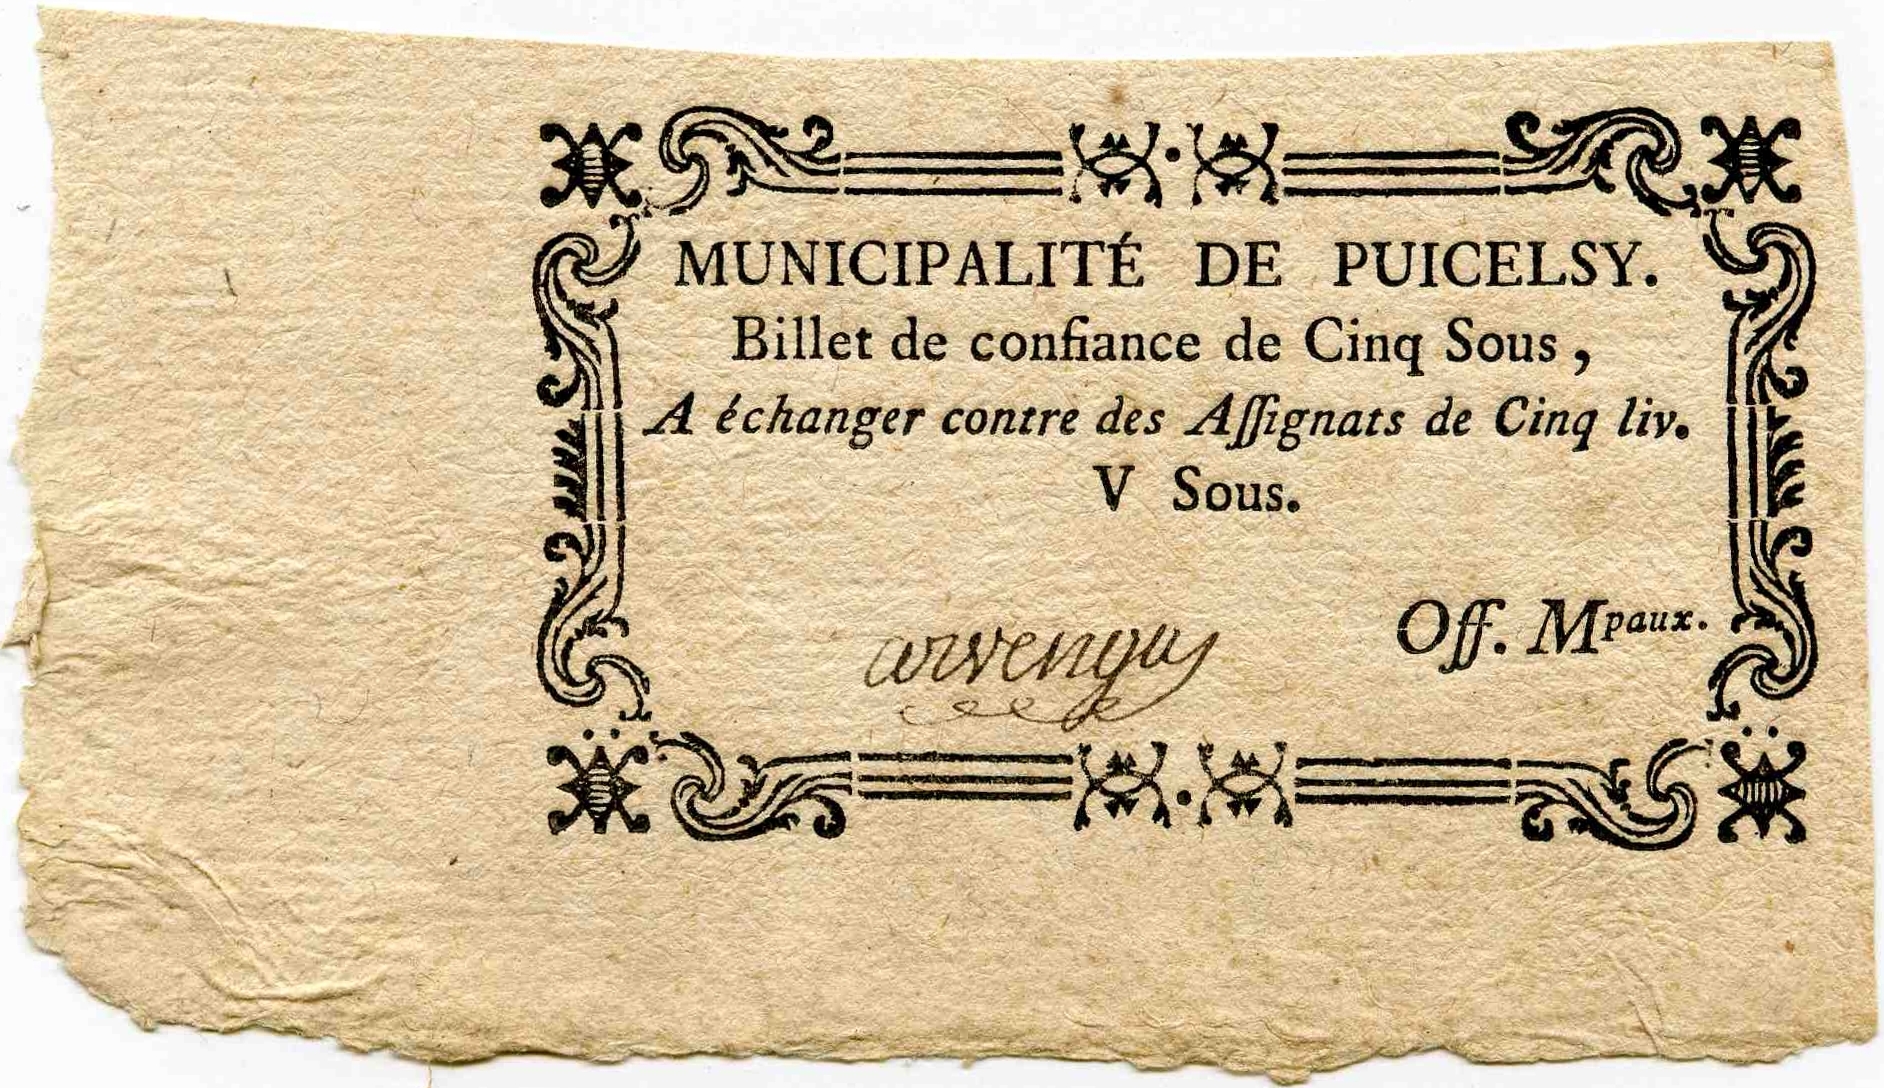 MUNICIPALITÉ DE PUICELSY.
Billet de confiance de Cinq Sous,
A échanger contre des Aſſignats de Cinq liv.
V Sous.
Off. Mpaux.
arvengas